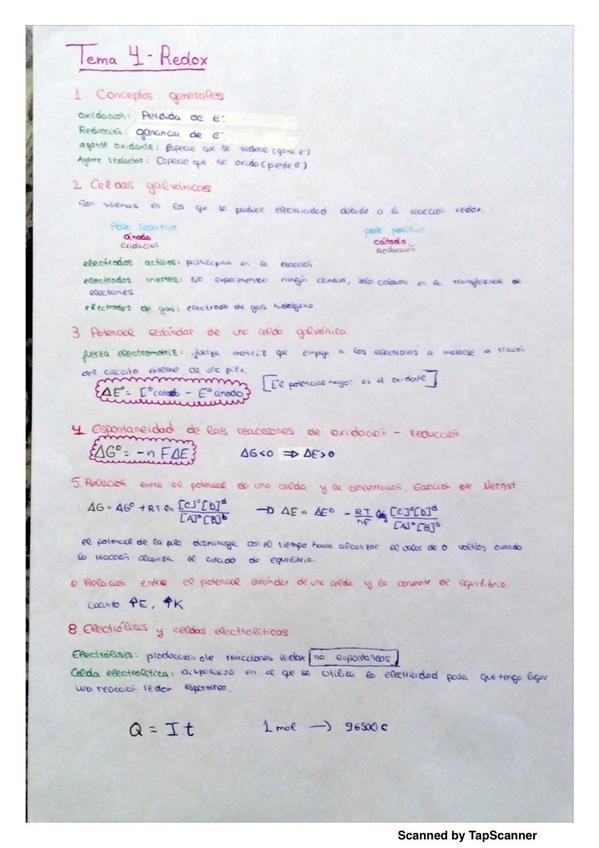 Tema 4 - Redox
1. Conceptos generales
oxidación: Pérdida de e-.
Reducción: ganancia de e-.
agente oxidante: Especie que se reduce (gana e-)
Agente reductor: Especie que se oxida (pierde e-)
2. Celdas galvánicas
Son sistemas en los que se produce electricidad debido a la reacción redox.
Polo negativo polo positivo
ánodo cátodo
oxidación Reducción
electrodos activos: participan en la reacción
electrodos inertes: No experimentan ningún cambio, sólo colaboran en la transferencia de
electrones.
electrodos de gas: electrodo de gas hidrógeno
3. Potencial estándar de una celda galvánica
fuerza electromotriz: fuerza motriz que empuja a los electrones a moverse a través
del circuito externo de una pila.
ΔE° = E°cátodo - E°ánodo [El potencial mayor es el oxidante]
4 Espontaneidad de las reacciones de oxidación - reducción
ΔG° = -n FΔE ΔG<0 ⇒ ΔE>0
5. Relación entre el potencial de una celda y la concentración. Ecuación de Nernst.
ΔG = ΔG° + RT ln [C]^c[D]^d / [A]^a[B]^b → ΔE = ΔE° - RT/nF ln [C]^c[D]^d / [A]^a[B]^b
el potencial de la pila disminuye con el tiempo hasta alcanzar el valor de 0 voltios, cuando
la reacción alcanza el estado de equilibrio.
Relación entre el potencial estándar de una celda y la constante de equilibrio.
cuanto ↑E, ↑K
8. Electrólisis y celdas electrolíticas
Electrólisis: producción de reacciones redox no espontáneas.
Celda electrolítica: dispositivo en el que se utiliza la electricidad para que tenga lugar
una reacción redox
Q = I t 1 mol → 96500 c
Scanned by TapScanner